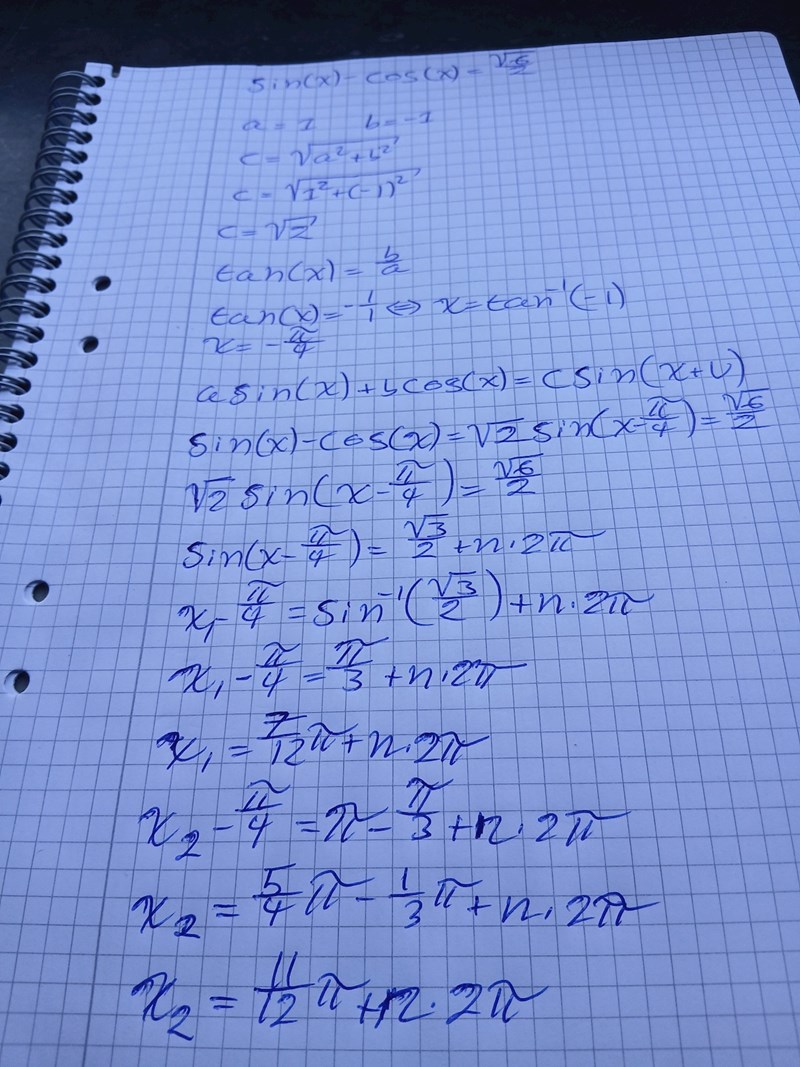 sin(x) - cos(x) = √6/2
a = 1 b = -1
c = √(a² + b²)
c = √(1² + (-1)²)
c = √2
tan(x) = b/a
tan(x) = -1/1 ⇔ x = tan⁻¹(-1)
x = -π/4
a sin(x) + b cos(x) = c sin(x + v)
sin(x) - cos(x) = √2 sin(x - π/4) = √6/2
√2 sin(x - π/4) = √6/2
sin(x - π/4) = √3/2 + n · 2π
x₁ - π/4 = sin⁻¹(√3/2) + n · 2π
x₁ - π/4 = π/3 + n · 2π
x₁ = 7/12 π + n · 2π
x₂ - π/4 = π - π/3 + n · 2π
x₂ = 5/4 π - 1/3 π + n · 2π
x₂ = 11/12 π + n · 2π